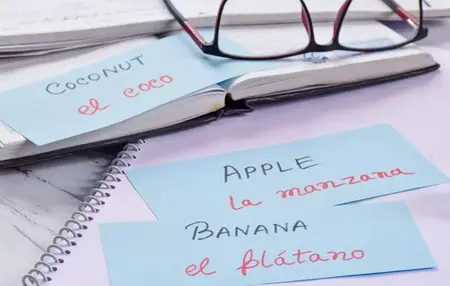 COCONUT
el coco
APPLE
la manzana
BANANA
el plátano